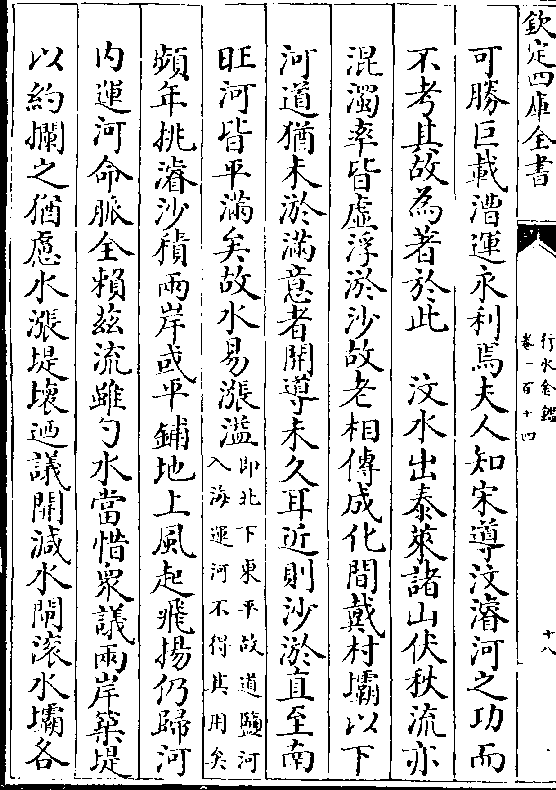 欽定四庫全書
行水金鑑
卷一百十四
十八
可勝巨載漕運永利焉夫人知宋導汶濬河之功而
不考其故為著於此　汶水出泰萊諸山伏秋流亦
混濁率皆虛浮淤沙故老相傳成化間戴村壩以下
河道猶未淤滿意者開導未久耳近則沙淤直至南
旺河皆平滿矣故水易漲溢即北下東平故道鹽河
入海運河不得其用矣
頻年挑濬沙積兩岸或平鋪地上風起飛揚仍歸河
内運河命脈全賴茲流雖勺水當惜衆議兩岸築堤
以約攔之猶慮水漲堤壞迺議開減水閘滚水壩各